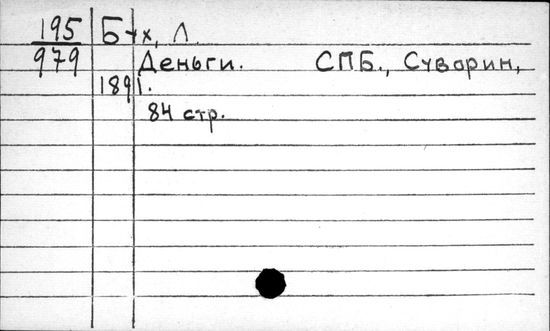 195 Бух, Л.
979 Деньги. СПБ., Суворин,
1891.
84 стр.